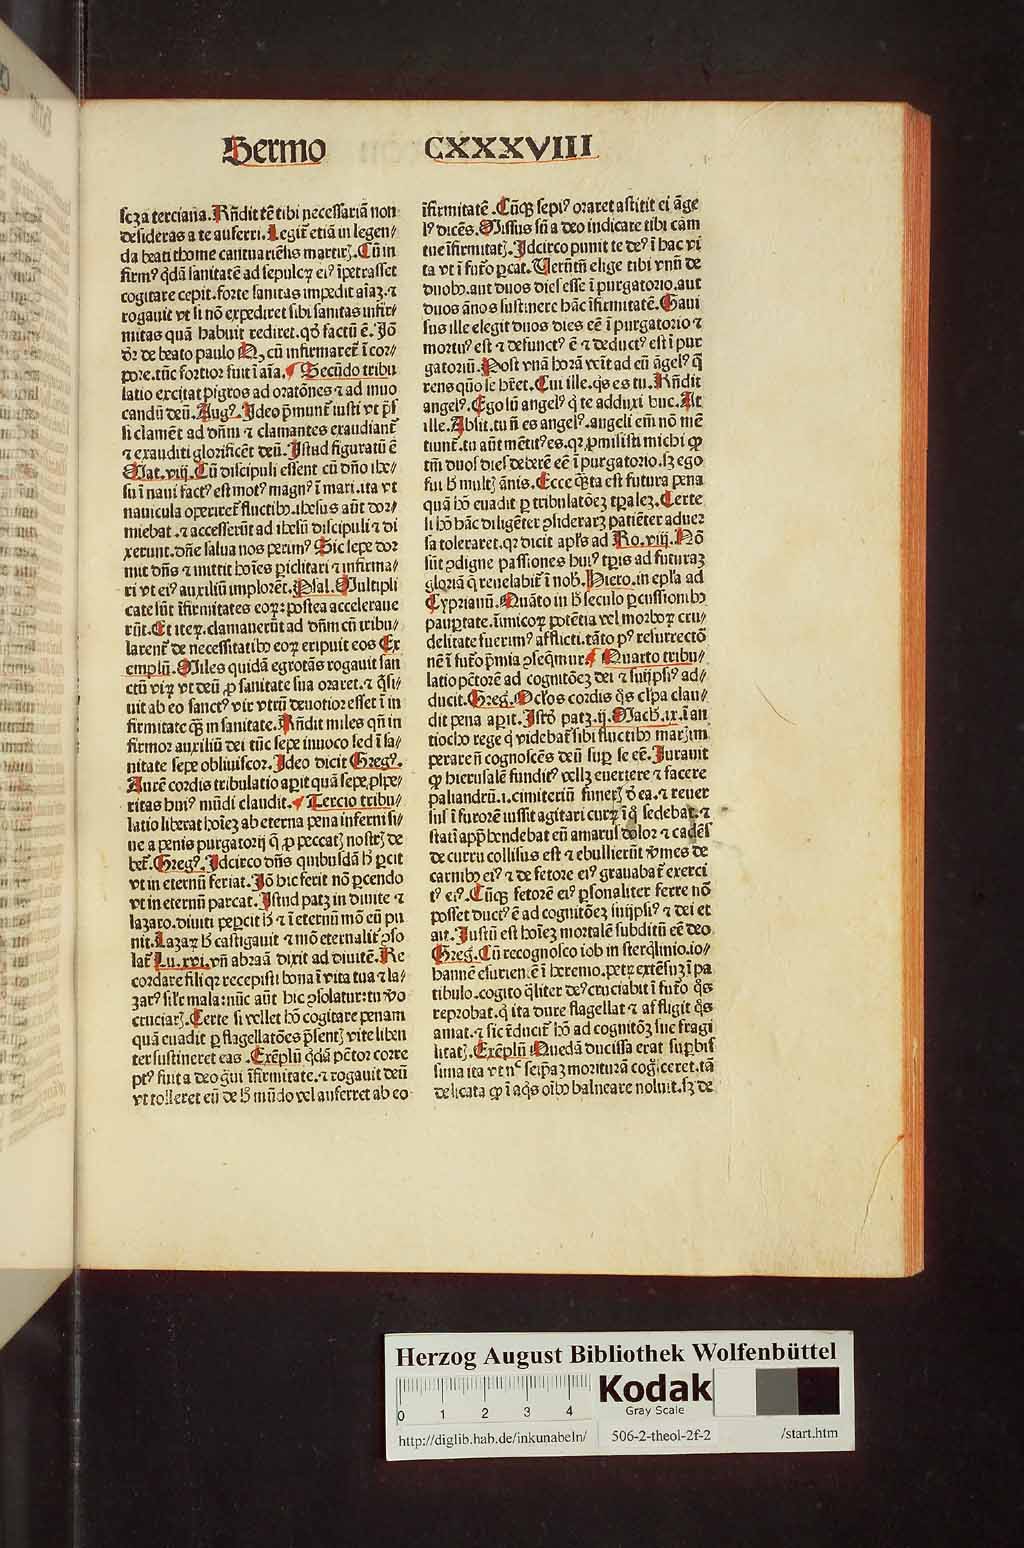 Sermo CXXXVIII
scꝫa terciana. Rñdit tẽ tibi necessariã non
desideras a te auferri. Legit᷑ etiã in legen/
da beati thome cantuariẽsis martirꝭ. Cũ in
firmꝰ q̃dã sanitatẽ ad sepulcꝝ eiꝰ ĩpetrasset
cogitare cepit. forte sanitas impedit aĩaꝫ. ⁊
rogauit vt si nõ expediret sibi sanitas infir/
mitas quã habuit rediret. qđ factũ ẽ. Jõ
dr̃ de beato paulo ꝙ cũ infirmaret᷑ ĩ cor/
pore. tũc fortior fuit ĩ aĩa. Secũdo tribu
latio excitat pigros ad oratõnes ⁊ ad inuo
candũ deũ. Augꝰ. Jdeo p̃munt᷑ iusti vt p̃s
si clamẽt ad dñm ⁊ clamantes exaudiant᷑
⁊ exauditi glorificẽt deũ. Jstud figuratũ ẽ
Mat. viij. Cũ discipuli essent cũ dño ihe/
su ĩ naui factꝰ est motꝰ magnꝰ ĩ mari. ita vt
nauicula operiret᷑ fluctibꝰ. ihesus aũt dor/
miebat. ⁊ accesserũt ad ihesũ discipuli ⁊ di
xerunt. dñe salua nos perimꝰ Sic sepe dor
mit dñs ⁊ mittit hoĩes ꝑiclitari ⁊ infirma/
ri vt eiꝰ auxiliũ implorẽt. Psal. Multipli
cate sũt ĩfirmitates eoꝝ: postea accelerauе
rũt. Et iteꝝ. clamauerũt ad dñm cũ tribu/
larent᷑ de necessitatibꝰ eoꝝ eripuit eos Ex
emplũ. Miles quidã egrotãs rogauit san
ctũ viꝝ vt deũ ꝓ sanitate sua oraret. ⁊ q̃si/
uit ab eo sanctꝰ vir vtrũ deuotior esset ĩ in
firmitate qꝫ̃ in sanitate. Rñdit miles qñ in
firmor auxiliũ dei tũc sepe inuoco sed ĩ sa/
nitate sepe obliuiscor. Jdeo dicit Gregꝰ.
Aurẽ cordis tribulatio aꝑit quã sepe ꝓspe/
ritas huiꝰ mũdi claudit. Tercio tribu/
latio liberat hoĩeꝫ ab eterna pena inferni si/
ue a penis purgatorij q̃ ꝓ peccatꝭ nostrꝭ de
bet᷑. Gregꝰ. Jdcirco dñs quibusdã hꝰ ꝑcit
vt in eternũ feriat. Jõ hic ferit nõ ꝑcendo
vt in eternũ parcat. Jstud patꝫ in diuite ⁊
lazaro. diuiti peꝑcit hꝰ ⁊ ĩ eternũ mõ eũ pu
nit. Lazaꝝ hꝰ castigauit ⁊ mõ eternalit᷑ ꝯso
lat᷑ Lu. xvi. vñ abraã dixit ad diuitẽ. Re
cordare fili qꝛ recepisti bona ĩ vita tua ⁊ la/
zarꝰ sil᷑r mala: nũc aũt hic ꝯsolatur: tu v̊o
cruciarꝭ. Certe si vellet hõ cogitare penam
quã euadit ꝑ flagellatões p̃sentꝭ vite liben
ter sustineret eas. Exẽplũ q̃dã pẽtor corre
ptꝰ fuit a deo g̃ui ĩfirmitate. ⁊ rogauit deũ
vt tolleret eũ de hꝰ mũdo vel auferret ab eo
ĩfirmitatẽ. Cũqꝫ sepiꝰ oraret astitit ei ãge
lꝰ dicẽs. Missus sũ a deo indicare tibi cam
tue ĩfirmitatꝭ. Jdcirco punit te deꝰ ĩ hac vi
ta vt ĩ fut᷑o ꝑcat. Uerũtñ elige tibi vnũ de
duobꝰ. aut duos dies esse ĩ purgatorio. aut
duos ãnos sustinere hãc ĩfirmitatẽ. Gaui
sus ille elegit duos dies eẽ ĩ purgatorio ⁊
mortuꝰ est ⁊ defunctꝰ ẽ ⁊ deductꝰ est ĩ pur
gatoriũ. Post vnã horã veĩt ad eũ ãgelꝰ q̃
rens quõ se hr̃et. Cui ille. q̃s es tu. Rñdit
angelꝰ. Ego sũ angelꝰ q̃ te adduxi huc. At
ille. Absit. tu ñ es angelꝰ. angeli em̃ nõ mẽ
tiunt᷑. tu aũt mẽtitꝰ es. qꝛ ꝓmisisti michi ꝙ
tm̃ duos dies deberẽ eẽ ĩ purgatorio. sꝫ ego
fui hꝰ multꝭ ãnis. Ecce q̃ꝫta est futura pena
quã hõ euadit ꝑ tribulatõeꝫ tꝑaleꝫ. Certe
si hõ hãc diligẽter ꝯsiderarꝫ patiẽter aduer
sa toleraret. qꝛ dicit apl̃s ad Ro. viij. Nõ
sũt ꝯdigne passiones huiꝰ tꝑis ad futuraꝫ
gloriã q̃ reuelabit᷑ ĩ nobꝭ. Hiero. in epl̃a ad
Cyprianũ. Quãto in hꝰ seculo ꝑcussionibꝰ
pauꝑtate. inimicoꝝ potẽtia vel morboꝝ cru/
delitate fuerimꝰ afflicti. tãto pꝰ resurrectõ
nẽ ĩ fut᷑o p̃mia ꝯseq̃mur. Quarto tribu/
latio pẽtorẽ ad cognitõeꝫ dei ⁊ suijpsiꝰ ad/
ducit. Greg. Ocl̃os cordis q̃s cl̃pa clau/
dit pena aꝑit. Jsto᷑ patꝫ. ij. Mach. ix. ĩ an
tiocho rege q̃ videbat᷑ sibi fluctibꝰ marꝭ im
perare ñ cognoscẽs deũ suꝑ se eẽ. Jurauit
ꝙ hierusalẽ funditꝰ vellꝫ euertere ⁊ facere
paliandrũ. i. cimiteriũ funerꝭ ð ea. ⁊ reuer
sus ĩ furorẽ iussit agitari curꝝ ĩ q̃ sedebat. ⁊
statĩ app̃hendebat eũ amarus dolor ⁊ cadẽs
de curru collisus est ⁊ ebullierũt v̊mes de
carnibꝰ eiꝰ ⁊ de fetore eiꝰ grauabat᷑ exerci
tꝰ eiꝰ. Cũqꝫ fetorẽ eiꝰ ꝑsonaliter ferre nõ
posset ductꝰ ẽ ad cognitõeꝫ suijpsiꝰ ⁊ dei et
ait. Justũ est hoĩeꝫ mortalẽ subditũ eẽ deo
Greg. Cũ recognosco iob in sterq̃linio. io/
hannẽ esuriẽ. ẽ ĩ heremo. petꝝ extẽsuꝫ ĩ pa
tibulo. cogito q̃liter deꝰ cruciabit ĩ fut᷑o q̃s
reprobat. q̃ ita dure flagellat ⁊ affligit q̃s
amat. ⁊ sic ĩducit᷑ hõ ad cognitõꝫ sue fragi
litatꝭ. Exẽplũ Quedã ducissa erat suꝑbis
sima ita vt nꝰ seip̃aꝫ moriturã cog̃sceret. tã
delicata ꝙ ĩ aq̃s oĩbꝰ balneare noluit. sꝫ de
Herzog August Bibliothek Wolfenbüttel
0 1 2 3 4
Kodak
Gray Scale
http://diglib.hab.de/inkunabeln/ 506-2-theol-2f-2 /start.htm